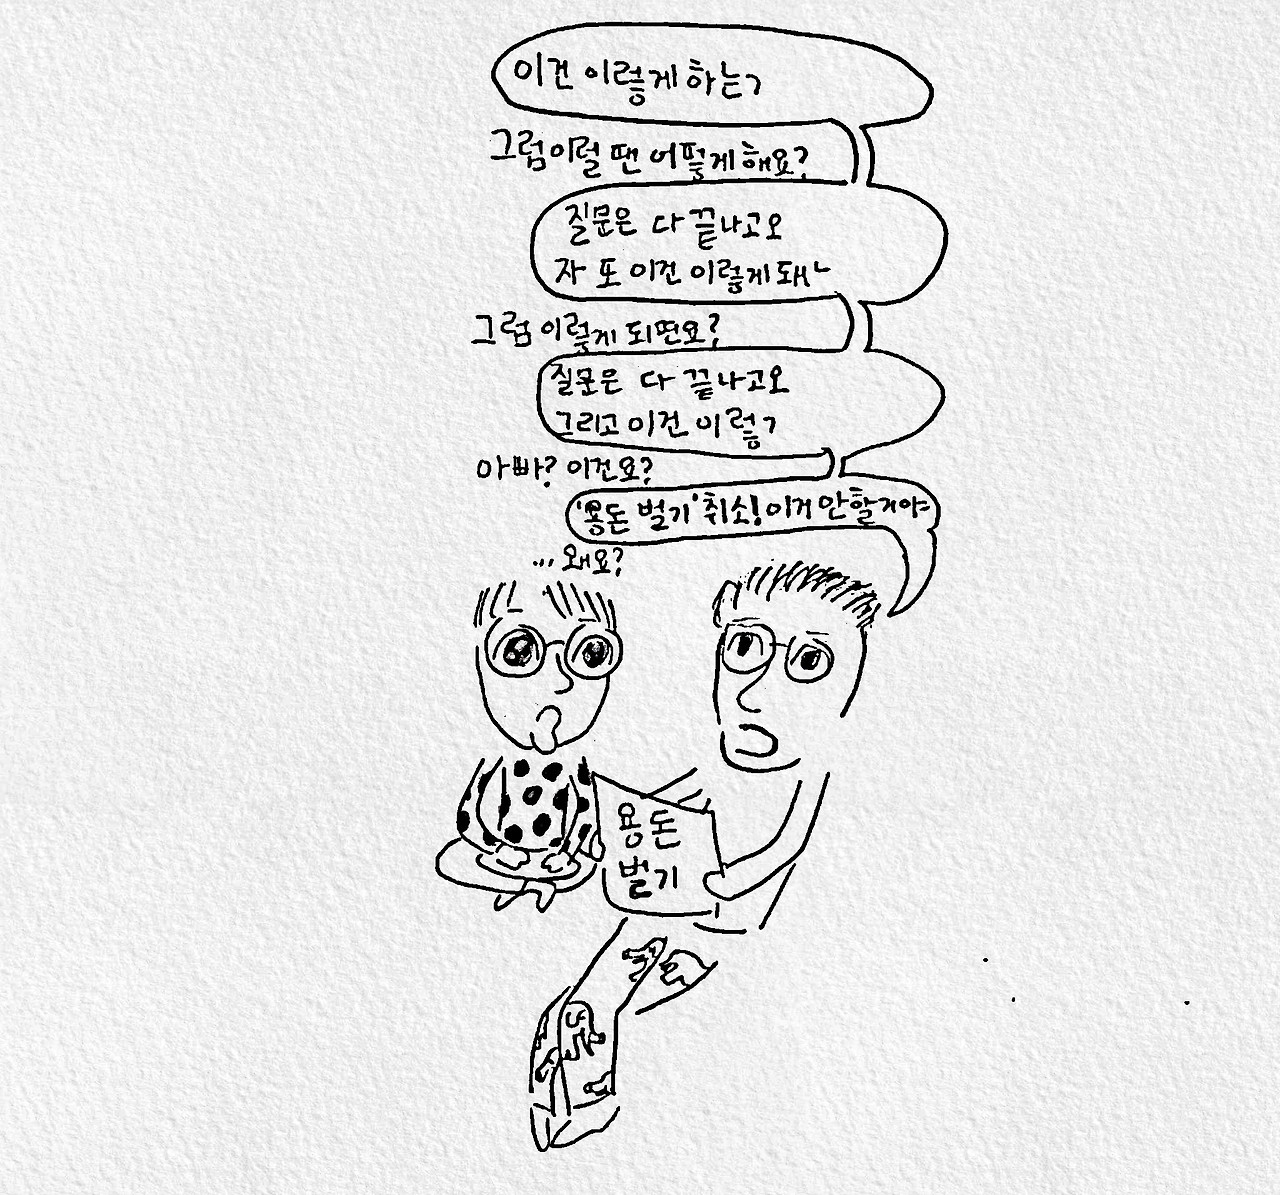 이건 이렇게 하는ㄱ
그럼 이럴 땐 어떻게 해요?
질문은 다 끝나고요
자 또 이건 이렇게 돼ㄴ
그럼 이렇게 되면요?
질문은 다 끝나고요
그리고 이건 이렇ㄱ
아빠? 이건요?
'용돈 벌기' 취소! 이거 안할거야
... 왜요?
용돈
벌기